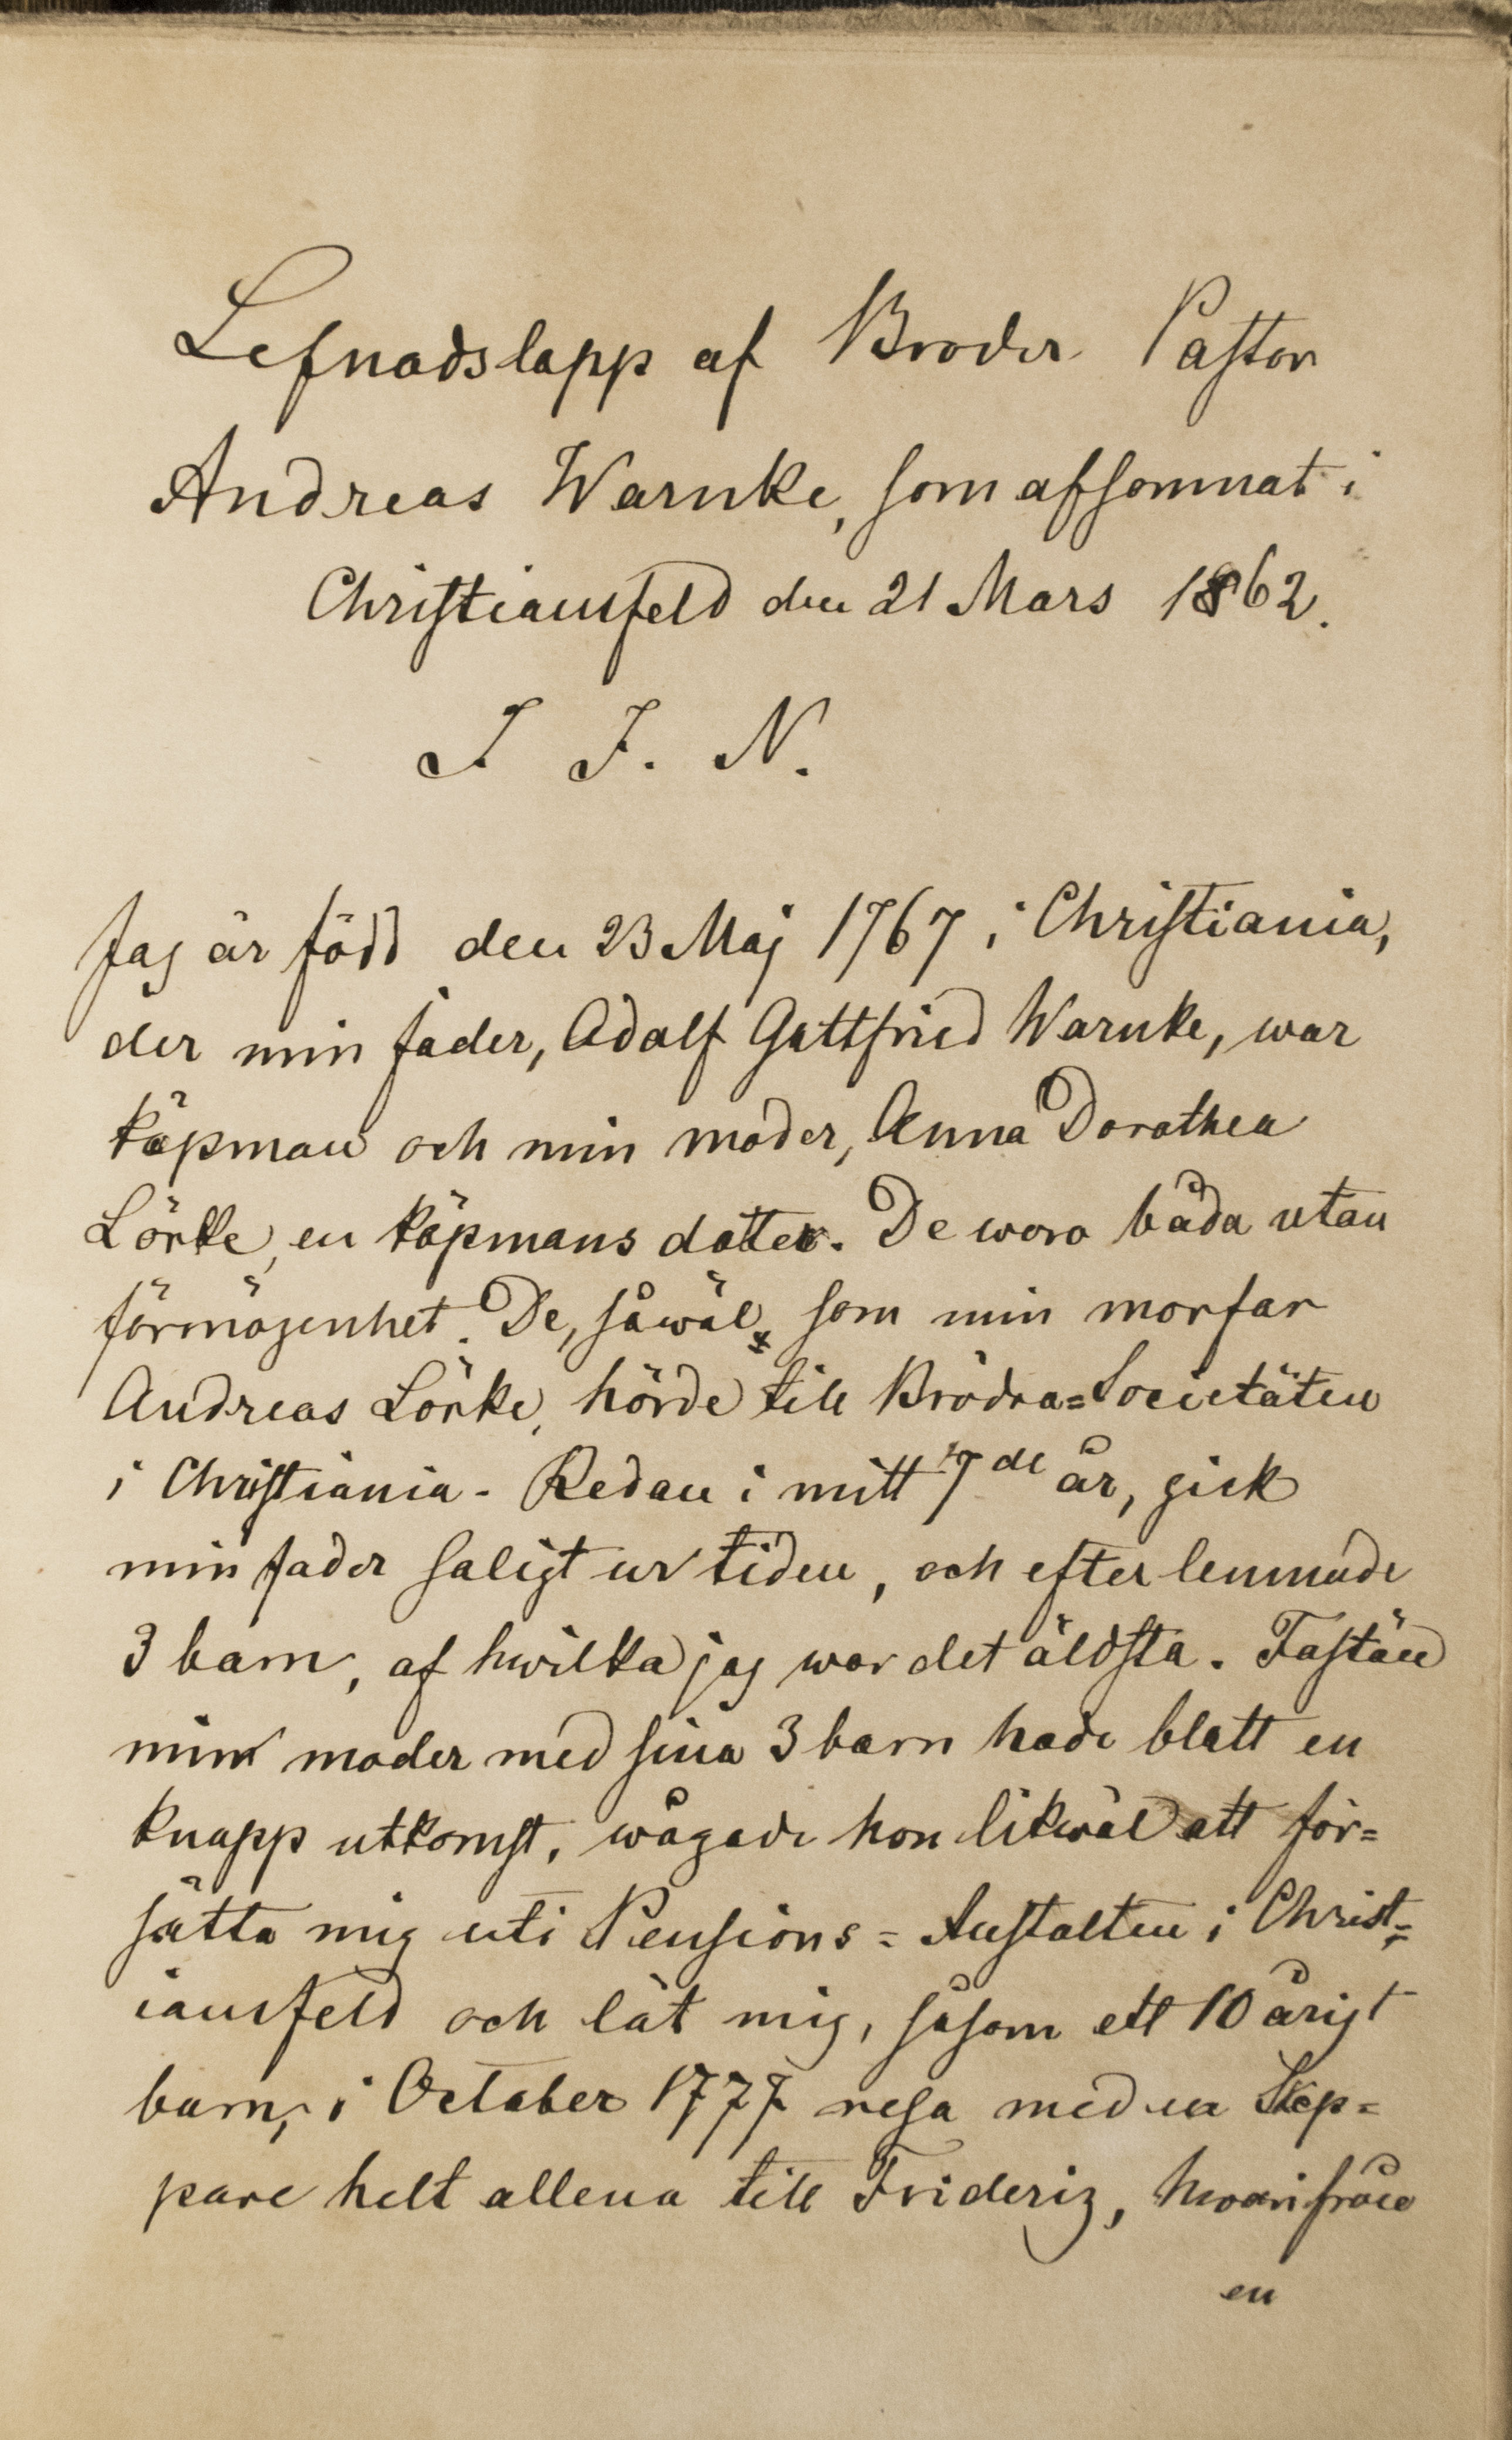 Lefnadslopp af Broder Pastor
Andreas Warnke, som afsomnat i
Christiansfeld den 21 Mars 1862.
J. J. N.
Jag är född den 23 Maj 1767 i Christiania,
der min fader, Adolf Gottfried Warnke, war
köpman och min moder, Anna Dorothea
Lörke, en köpmans dotter. De woro båda utan
förmögenhet. De, såwäl som min morfar
Andreas Lörke, hörde till Brödra=Societäten
i Christiania. Redan i mitt 7de år, gick
min fader saligt ur tiden, och efterlemnade
3 barn, af hwilka jag war det äldsta. Fastän
min moder med sina 3 barn hade blott en
knapp utkomst, wågade hon likwäl att för=
sätta mig uti Pensions=Anstalten i Christ=
iansfeld och lät mig, såsom ett 10 årigt
barn, i October 1777 resa med en Skep=
pare helt allena till Frideriz, hwarifrån
en